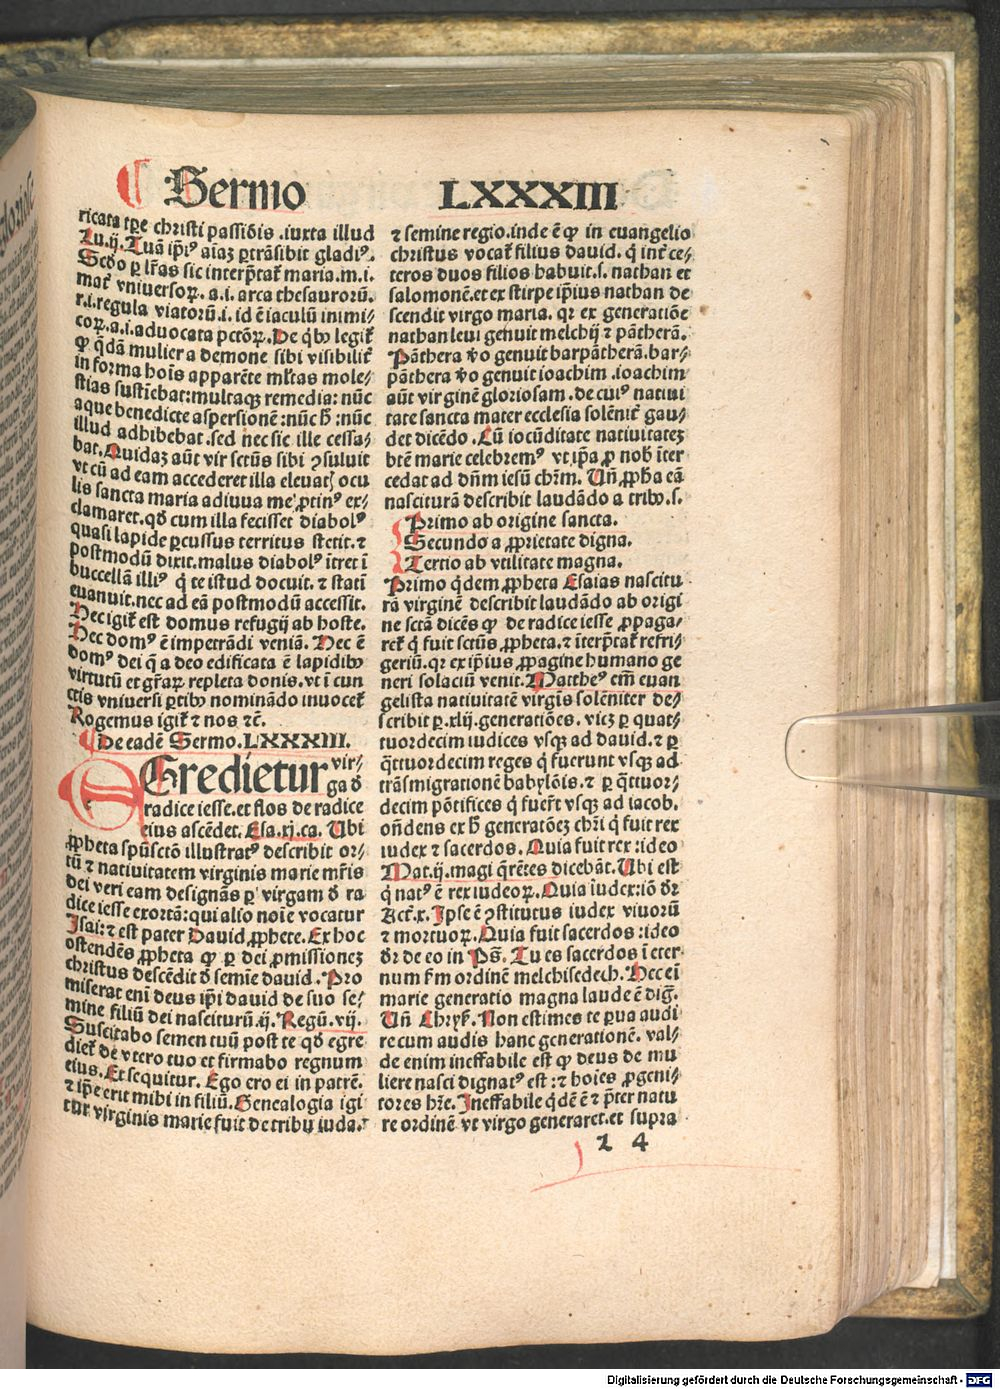 Sermo LXXXIII
ricata tꝑe christi passiõis .iuxta illud
Lu.ij. Tuã ip̃iꝰ aĩaꝫ ꝑtrãsibit gladiꝰ.
Scďo ꝑ lr̃as sic interp̃tat᷑ maria.m.i.
mat᷑ vniuersoꝝ. a.i. arca thesauroꝝ.
r.i.regula viatorũ.i. id ẽ iaculũ inimi-
coꝝ.a.i.aduocata pctõꝝ. De qͥbꝰ legit᷑
ꝙ q̃dã mulier a demone sibi visibilit᷑
in forma hoĩs apparẽte ml̃tas mole-
stias sustiẽbat:multaqꝫ remedia: nũc
aque benedicte aspersionẽ:nũc h̃ :nũc
illud adhibebat .sed nec sic ille cessa-
bat. Quidaꝫ aũt vir sctũs sibi ꝯsuluit
vt cũ ad eam accederet illa eleuatꝭ ocu
lis sancta maria adiuua me ꝓtinꝰ ex-
clamaret. qď cum illa fecisset diabolꝰ
quasi lapide ꝑcussus territus stetit. ⁊
postmodũ dixit. malus diabolꝰ itret ĩ
buccellã illiꝰ q̇ te istud docuit. ⁊ statĩ
euanuit. nec ad eã postmodũ accessit.
Hec igit᷑ est domus refugij ab hoste.
Hec domꝰ ẽ impetrãdi veniã. Hec ẽ
domꝰ dei q̃ a deo edificata ẽ lapidibꝰ
virtutũ et gr̃aꝝ repleta donis. vt ĩ cun
ctis vniuersi ꝑtibꝰ nominãdo inuocet᷑
Rogemus igit᷑ ⁊ nos ⁊c̃.
De eadẽ Sermo. LXXXIII.
EGredietur vir-
ga ď
radice iesse.et flos de radice
eius ascẽdet. Esa.xj.ca. Ubi
ꝓpheta spũsctõ illustratꝰ describit or-
tũ ⁊ natiuitatem virginis marie mr̃is
dei veri eam designãs ꝑ virgam ď ra
dice iesse exortã: qui alio noĩe vocatur
Isai: ⁊ est pater Dauid ꝓphete. Ex hoc
ostendẽs ꝓpheta ꝙ ꝑ dei ꝓmissionez
christus descẽdit ď semĩe dauid . Pro
miserat eni deus ip̃i dauid de suo se-
mine filiũ dei nasciturũ.ij. Regũ.vij.
Suscitabo semen tuũ post te qď egre
diet᷑ de vtero tuo et firmabo regnum
eius. Et sequitur. Ego ero ei in patrẽ.
⁊ ip̃e erit mihi in filiũ. Genealogia igi
tur virginis marie fuit de tribu iuda.
⁊ semine regio.inde ẽ ꝙ in euangelio
christus vocat᷑ filius dauid. q̇ int᷑ ce-
teros duos filios habuit.s. nathan et
salomonẽ.et ex stirpe ip̃ius nathan de
scendit virgo maria. qꝛ ex generatiõe
nathan leui genuit melchij ⁊ pãtherã.
Pãthera ṽo genuit barpãtherã. bar-
pãthera ṽo genuit ioachim .ioachim
aũt virginẽ gloriosam .de cuiꝰ natiui
tate sancta mater ecclesia solẽnit᷑ gau-
det dicẽdo . Cũ iocũditate natiuitateꝫ
btẽ marie celebremꝰ vt ip̃a ꝓ nob̃ iter
cedat ad dñm iesũ chr̃m. Uñ ꝓph̃a eã
nasciturã describit laudãdo a tribꝰ .s.
Primo ab origine sancta.
Secundo a ꝓprietate digna.
Tertio ab vtilitate magna.
Primo q̇dem ꝓpheta Esaias nascitu
rã virginẽ describit laudãdo ab origi
ne sctã dicẽs ꝙ de radice iesse ꝓpaga-
ret᷑ q̇ fuit sctũs ꝓpheta. ⁊ ĩterp̃tat᷑ refri-
geriũ. qꝛ ex ip̃ius ꝓpagine humano ge
neri solaciũ venit. Mattheꝰ em̃ euan
gelista natiuitatẽ virgis solẽniter de-
scribit ꝑ .xlij. generatiões. vicꝫ ꝑ quat-
tuordecim iudices vsqꝫ ad dauid. ⁊ ꝑ
q̃ttuordecim reges q̇ fuerunt vsqꝫ ad
trãsmigrationẽ babylõis. ⁊ ꝑ q̃ttuor-
decim põtifices q̇ fuer̃t vsqꝫ ad iacob.
oñdens ex h̃ generatõeꝫ chr̃i q̇ fuit rex
iudex ⁊ sacerdos. Quia fuit rex :ideo
Mat.ij. magi q̃rẽtes dicebãt. Ubi est
q̇ natꝰ ẽ rex iudeoꝝ. Quia iudex:iõ dr̃
Act̃.x. Ipse ẽ ꝯstitutus iudex viuorũ
⁊ mortuoꝝ. Quia fuit sacerdos :ideo
dr̃ de eo in Ps̃. Tu es sacerdos ĩ eter-
num s̃m ordinẽ melchisedech. Hec eĩ
marie generatio magna laude ẽ dig̃.
Uñ Chrys̃. Non estimes te ꝑua audi
re cum audis hanc generationẽ. val-
de enim ineffabile est ꝙ deus de mu
liere nasci dignatꝰ est : ⁊ hoĩes ꝓgeni-
tores hr̃e. Ineffabile q̇dẽ ẽ ⁊ p̃ter natu
re ordinẽ vt virgo generaret.et supra
z 4
Digitalisierung gefördert durch die Deutsche Forschungsgemeinschaft - DFG